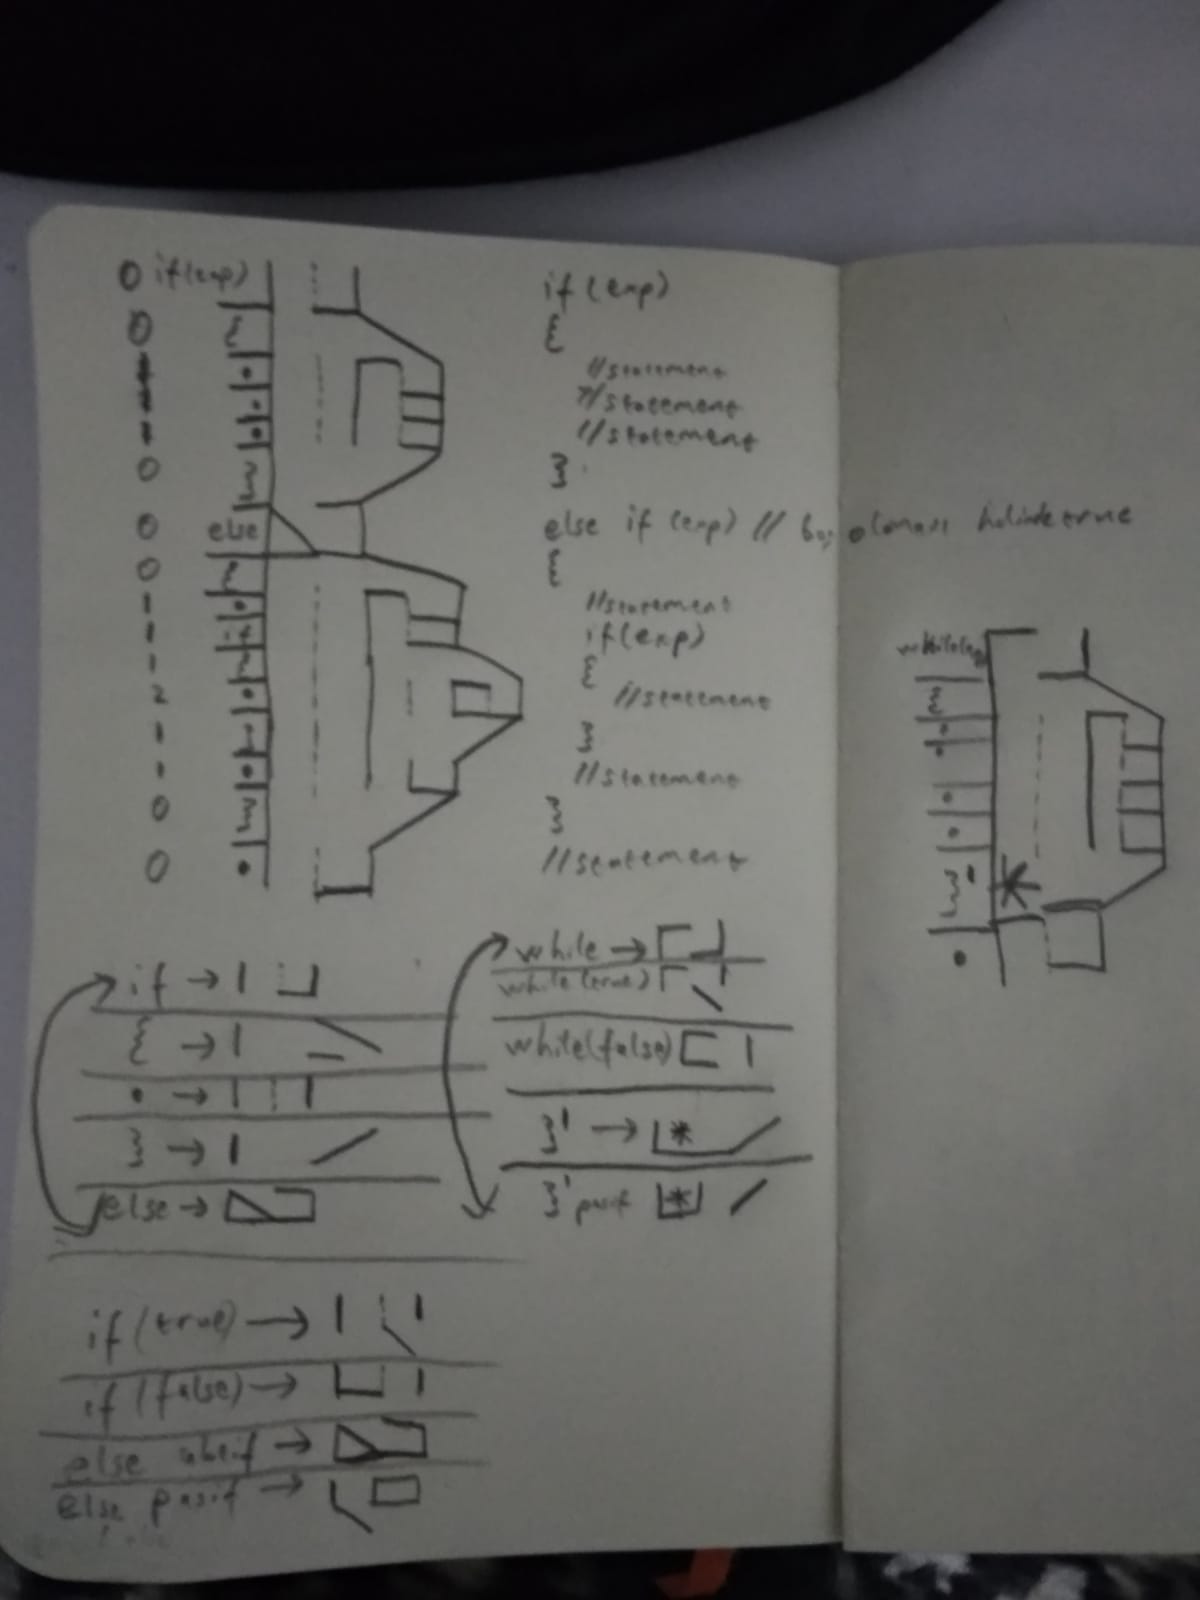 0 if(exp)
0 {
1 •
1 •
1 •
0 }
0 else
0 {
1 •
1 if
1 {
2 •
1 }
1 •
0 }
0 •
if (exp)
{
//statement
//statement
//statement
}
else if (exp) // boş olması halinde true
{
//statement
if(exp)
{
//statement
}
//statement
}
//statement
if →
{ →
• →
} →
else →
while →
while(true)
while(false)
}' → *
}' pasif *
if (true) →
if (false) →
else →
else pasif →
{
•
•
•
•
}' *
•